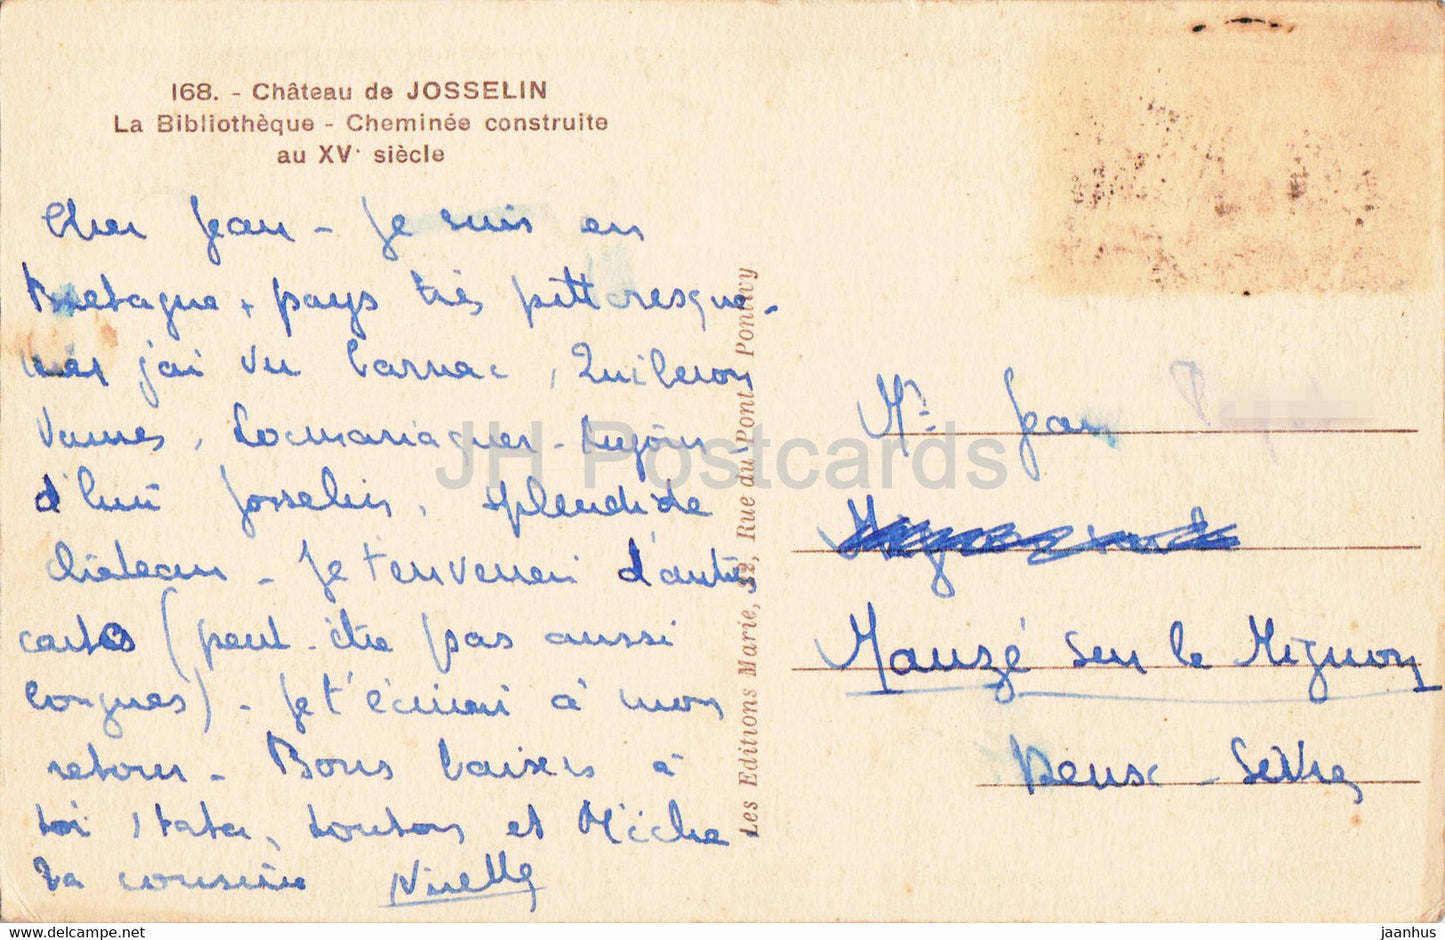 168. - Château de JOSSELIN
La Bibliothèque - Cheminée construite
au XVe siècle
Cher Jean - Je suis en
Bretagne, pays très pittoresque -
j'ai vu Carnac, Quiberon
Vannes, Locmariaquer - Aujour-
d'hui Josselin, splendide
château - Je t'enverrai d'autres
cartes (peut-être pas aussi
longues) - Je t'écrirai à mon
retour - Bons baisers à
toi, tata, tonton et Miche
Ta cousine
Les Editions Marie, 32, Rue du Pont, Pontivy
Mr. Jean
Mauzé sur le Mignon
Deux - Sèvres
JH Postcards
http://jhpostcards.com
jaanhus